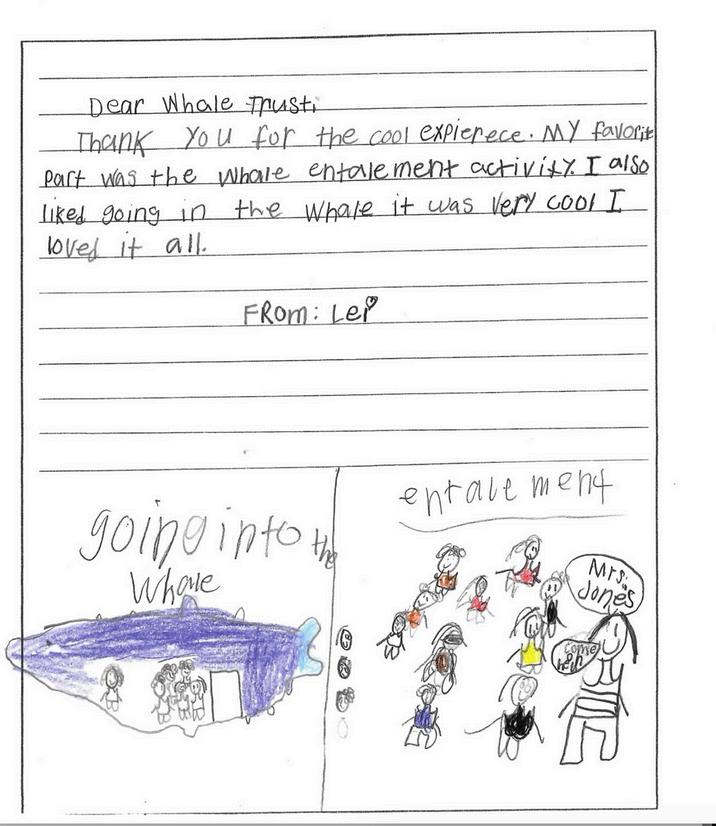 Dear Whale Trust,
Thank you for the cool expierece. My favorit
part was the whale entalement activity. I also
liked going in the whale it was very cool I
loved it all.
From: Lei
going into the
Whale
entalement
Mrs.
Jones
Come